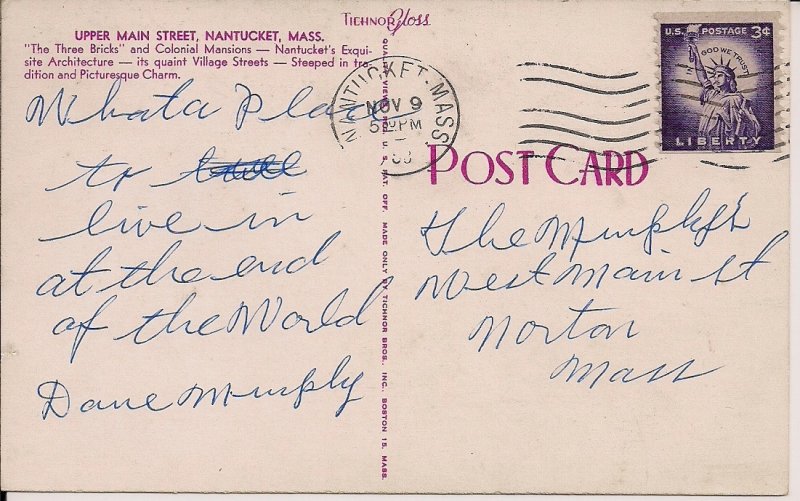 TICHNOR Gloss
UPPER MAIN STREET, NANTUCKET, MASS.
"The Three Bricks" and Colonial Mansions — Nantucket's Exqui-
site Architecture — its quaint Village Streets — Steeped in tra-
dition and Picturesque Charm.
What a Place
to
live in
at the end
of the World
Dave Murphy
QUALITY VIEWS REG. U. S. PAT. OFF. MADE ONLY BY TICHNOR BROS., INC., BOSTON 15, MASS.
NANTUCKET. MASS.
NOV 9
PM
U.S. POSTAGE 3¢
IN GOD WE TRUST
LIBERTY
POST CARD
The Murphy's
West Main St
Norton
Mass